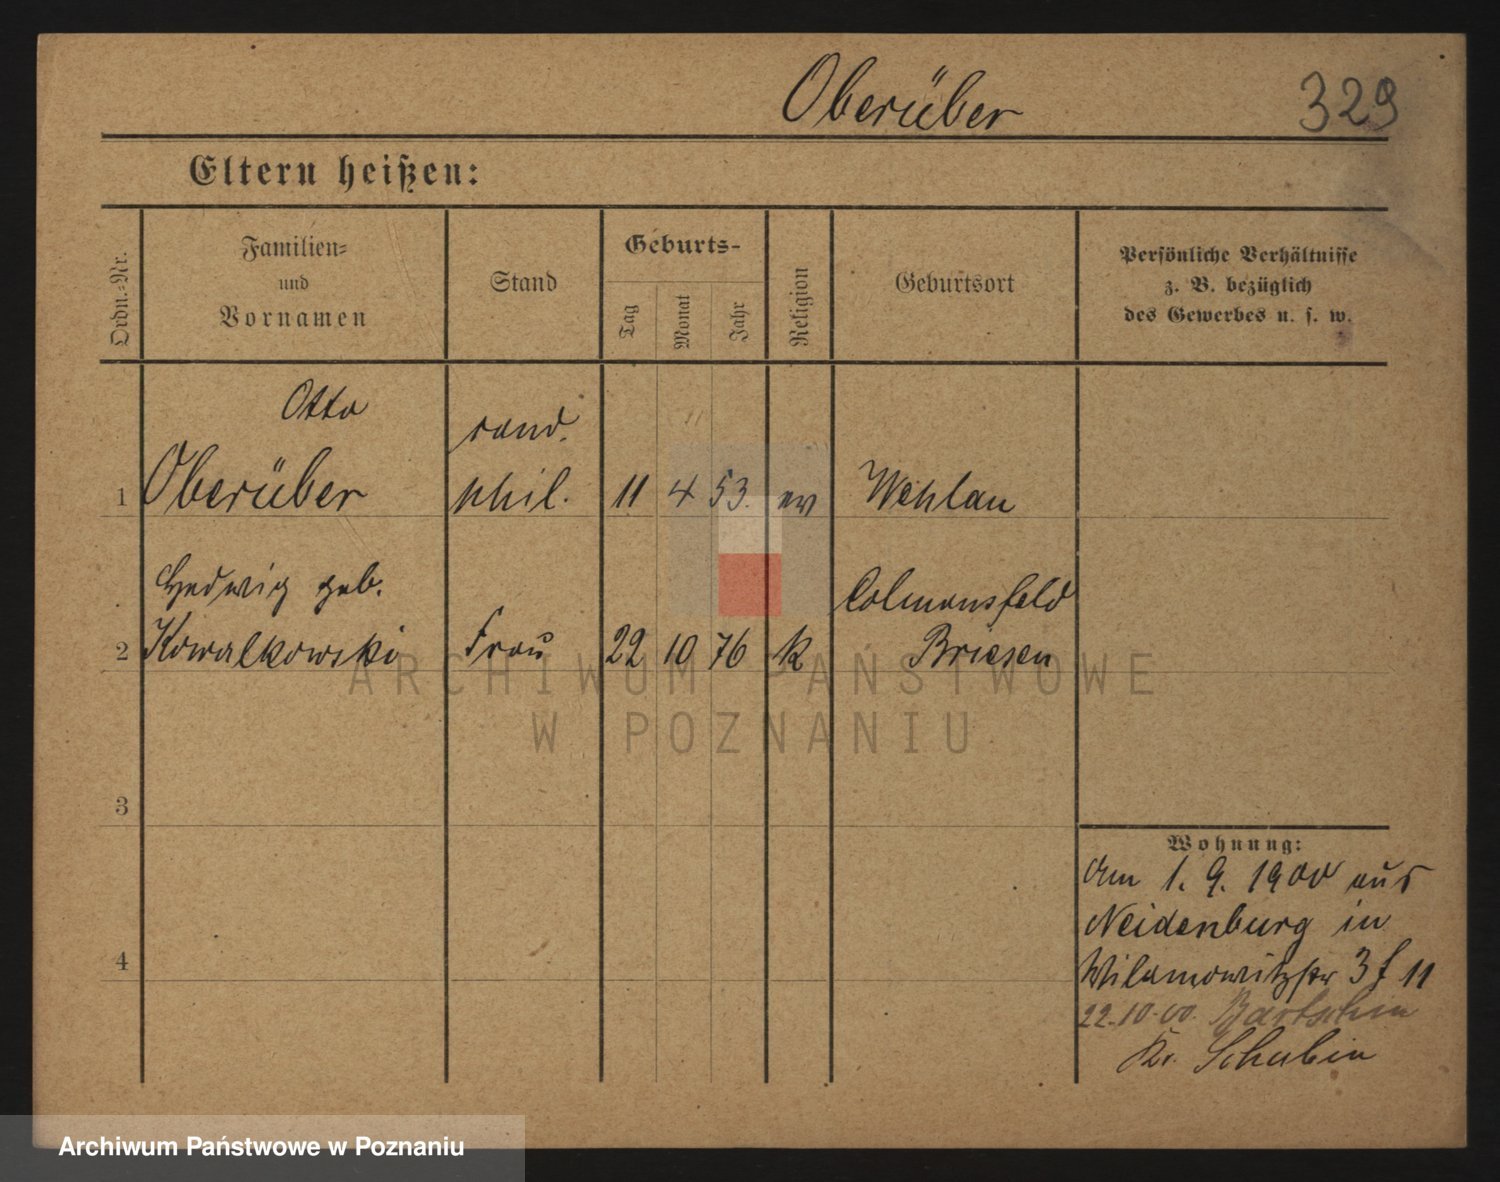 Oberüber 329
Eltern heißen:
Ordn.-Nr.
Familien-
und
Vornamen
Stand
Geburts-
Tag
Monat
Jahr
Religion
Geburtsort
Persönliche Verhältnisse
z. B. bezüglich
des Gewerbes u. s. w.
Otto cand.
1 Oberüber phil. 11 4 53. ev Wehlau
Hedwig geb. Colmansfeld
2 Kowalkowski Frau 22 10 76 k Briesen
3
4
Wohnung:
Am 1. 9. 1900 aus
Neidenburg in
Wilamowitzstr 3 f 11
22.10.00. Bartschin
Kr. Schubin
ARCHIWUM PAŃSTWOWE
W POZNANIU
Archiwum Państwowe w Poznaniu